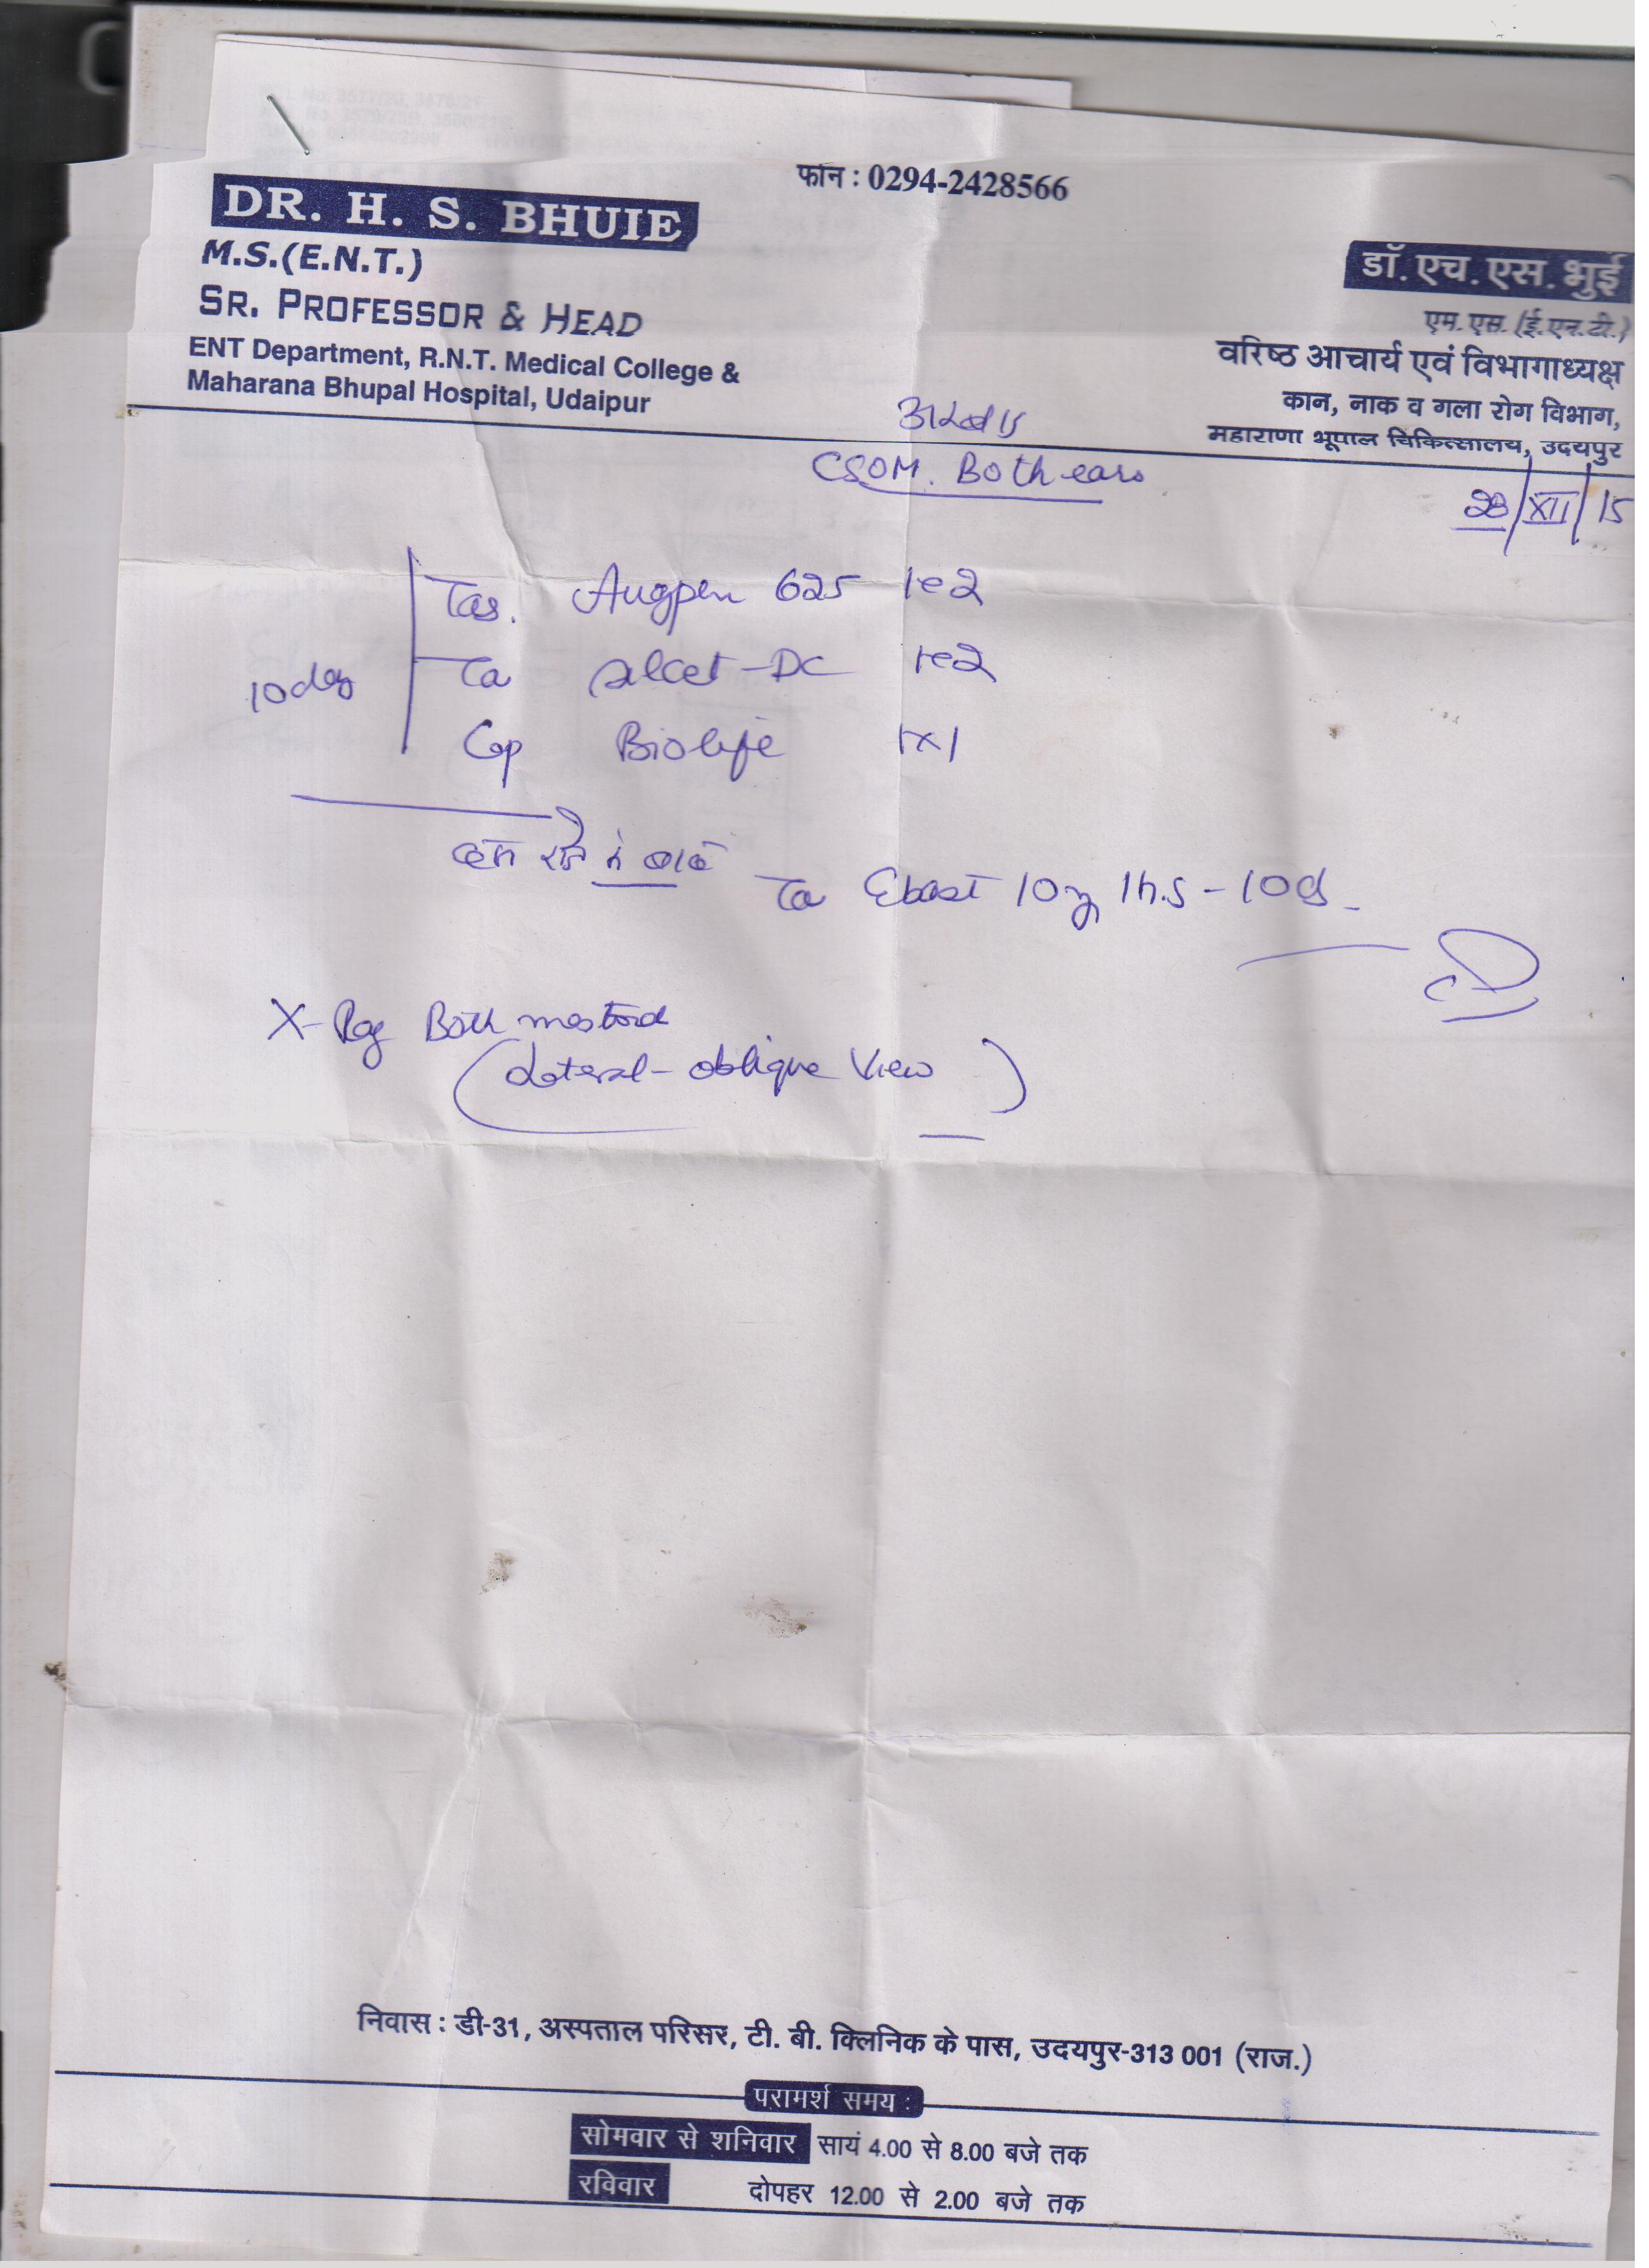 फोन : 0294-2428566
DR. H. S. BHUIE
M.S.(E.N.T.)
SR. PROFESSOR & HEAD
ENT Department, R.N.T. Medical College &
Maharana Bhupal Hospital, Udaipur
डॉ. एच. एस. भुई
एम. एस. (ई.एन.टी.)
वरिष्ठ आचार्य एवं विभागाध्यक्ष
कान, नाक व गला रोग विभाग,
महाराणा भूपाल चिकित्सालय, उदयपुर
CSOM. Both ears
28/XII/15
Tab. Augpen 625 1e2
Ta alcet-DC 1e2
10 day
Cap Biolife 1x1
Ta Ebast 10mg 1h.s - 10d
X-Ray Both mastoid
(Lateral-oblique View)
निवास : डी-31, अस्पताल परिसर, टी. बी. क्लिनिक के पास, उदयपुर-313 001 (राज.)
परामर्श समय :
सोमवार से शनिवार सायं 4.00 से 8.00 बजे तक
रविवार दोपहर 12.00 से 2.00 बजे तक